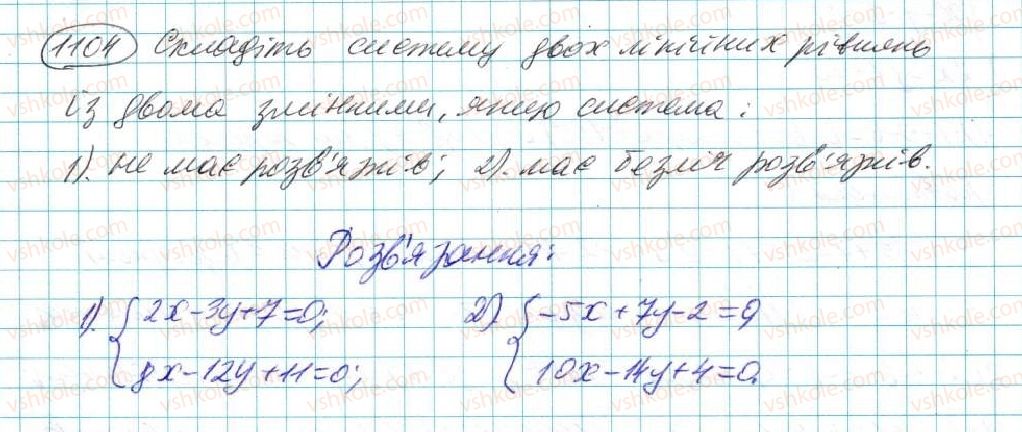 1104 Складіть систему двох лінійних рівнянь
із двома змінними, якщо система:
1). не має розв'язків; 2). має безліч розв'язків.
Розв'язання:
1). { 2x-3y+7=0; 2). { -5x+7y-2=0,
8x-12y+11=0; 10x-14y+4=0.
vshkole.com